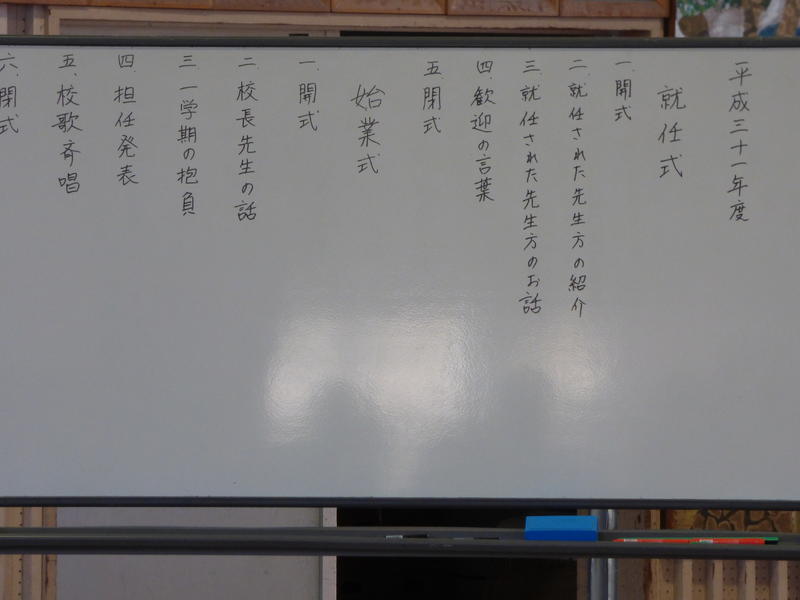 平成三十一年度
就任式
一、開式
二、就任された先生方の紹介
三、就任された先生方のお話
四、歓迎の言葉
五、閉式
始業式
一、開式
二、校長先生の話
三、一学期の抱負
四、担任発表
五、校歌斉唱
六、閉式